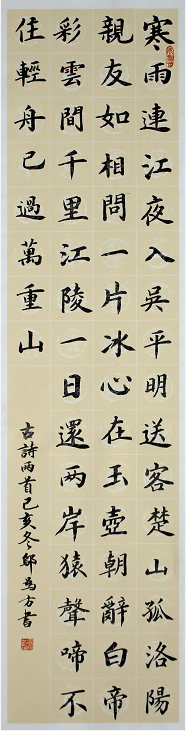 寒雨連江夜入吳平明送客楚山孤洛陽
親友如相問一片冰心在玉壺朝辭白帝
彩雲間千里江陵一日還两岸猿聲啼不
住輕舟已過萬重山
古詩两首己亥冬鄔為方書